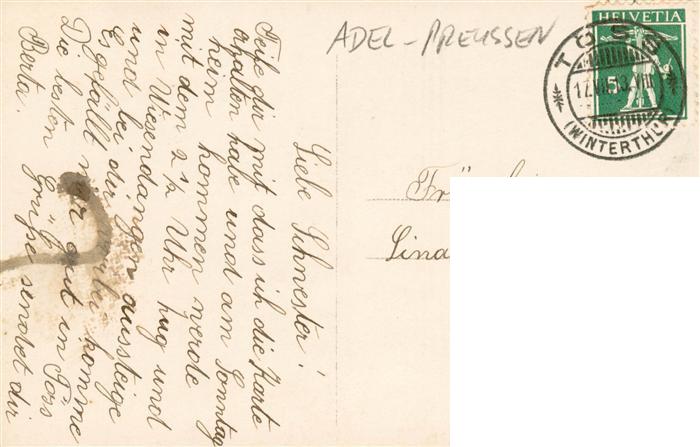 ADEL - PREUSSEN
HELVETIA
5
TÖSS
17.VII.13.VIII
(WINTERTHUR)
Liebe Schwester!
Teile dir mit dass ich die Karte
erhalten habe und am Sonntag
heim kommen werde
mit dem 2½ Uhr hug und
in Wiesendangen aussteige
und bei dir vorbei komme
Es gefällt mir gut in Töss
Die besten Grüsse sendet dir
Berta.
Lina